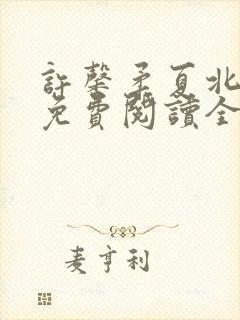 許馨矛夏北
免費閱讀全
麦亨利